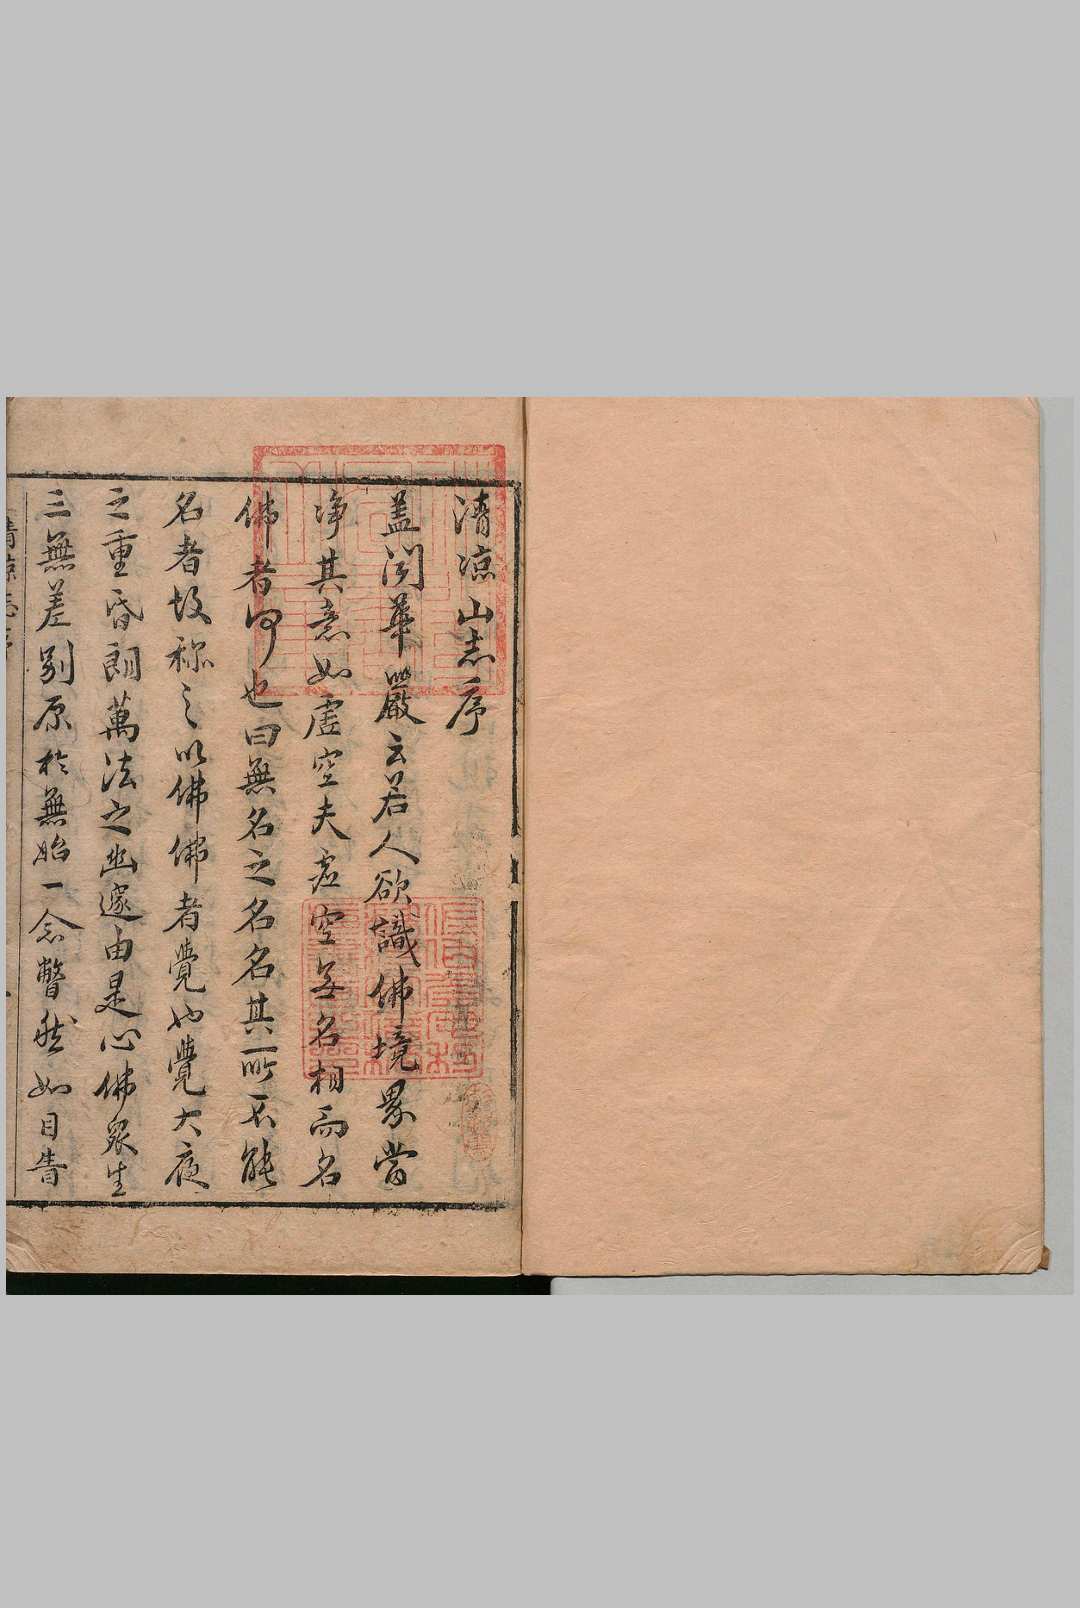 清凉山志序
盖聞華嚴云若人欲識佛境界當
净其意如虛空夫虛空無名相而名
佛者何也曰無名之名名其所不能
名者故稱之以佛佛者覺也覺大夜
之重昏朗萬法之幽邃由是心佛眾生
三無差別原於無始一念瞥然如目眚
清凉志序